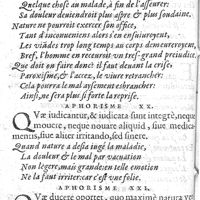 Quelque chose au malade, à fin de l'asseurer:
Sa douleur deuiendroit plus aspre & plus soudaine.
Nature ne pourroit exercer son office,
Tant d'inconueniens alors s'en ensuiuroyent,
Les viãdes trop long temps au corps demeureroyent,
Bref, l'homme en receuroit vn tres-grand preiudice.
Que doit on faire donc? il faut deuant la crise
Paroxisme, & l'accez, le viure retrancher:
Cela pourra le mal aysement esbrancher:
Ainsi, ne sera plus si forte la reprise.
APHORISME XX.
Quæ iudicantur, & iudicata sunt integrè, neque
mouere, neque nouare aliquid, siue medica-
mentis, siue aliter irritando, sed sinere.
Quand nature a desia iugé la maladie,
La douleur & le mal par euacuation
Non legere, mais grande en telle emotion
Ne la faut irriter: car c'est vne folie.
APHORISME XXI.
Quæ ducere oportet, quo maximè natura ver